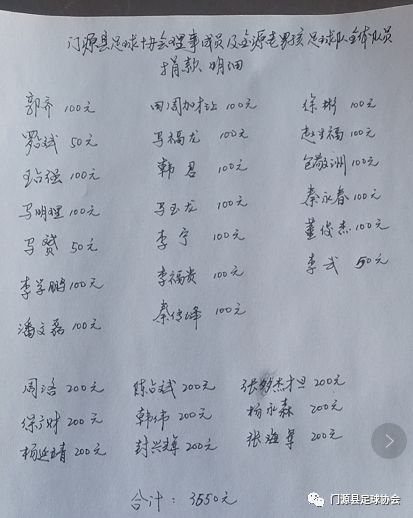 门源县足球协会理事成员及金源老男孩足球队全体队员
捐款明细
郭齐 100元 田周加才让 100元 徐彬 100元
骆斌 50元 马福龙 100元 赵才福 100元
钻强 100元 韩君 100元 包敬洲 100元
马明理 100元 马玉龙 100元 秦永春 100元
马赟 50元 李宁 100元 董俊杰 100元
李学鹏 100元 李福贵 100元 李武 50元
潘文磊 100元 秦传峰 100元
周洛 200元 陈占斌 200元 张多杰才旦 200元
保广财 200元 韩伟 200元 杨永森 200元
杨延靖 200元 封兴辉 200元 张海军 200元
合计：3550元
门源县足球协会